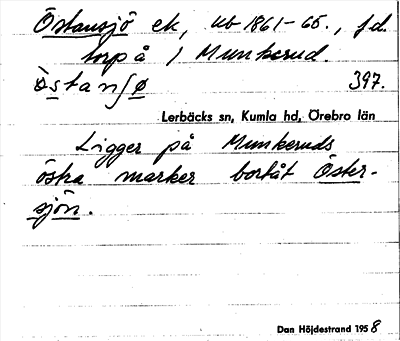 Östansjö ek, kb 1861-65., f.d.
torp å / Munkerud.
östanʃø 397.
Lerbäcks sn, Kumla hd, Örebro län
Ligger på Munkeruds
östra marker bortåt Öster-
sjön.
Dan Höjdestrand 1958